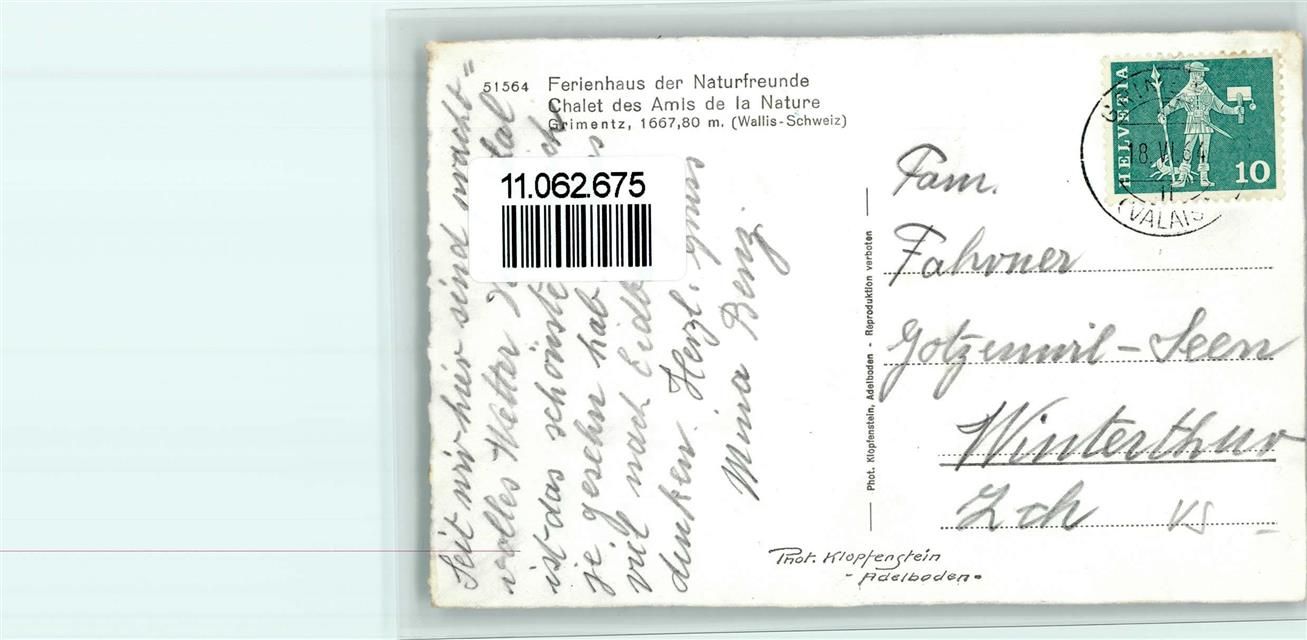 51564 Ferienhaus der Naturfreunde
Chalet des Amis de la Nature
Grimentz, 1667,80 m. (Wallis-Schweiz)
11.062.675
Seit wir hier sind pracht=
volles Wetter tal
ist das schönste
je gesehn hab
viel nach
denken. Herzl. gruss
Mina Benz
Phot. Klopfenstein, Adelboden - Reproduktion verboten
HELVETIA
10
18.VI.64
(VALAIS)
Fam.
Fahrner
Gotzenwil-Seen
Winterthur
Zch VS
Phot. Klopfenstein
- Adelboden -